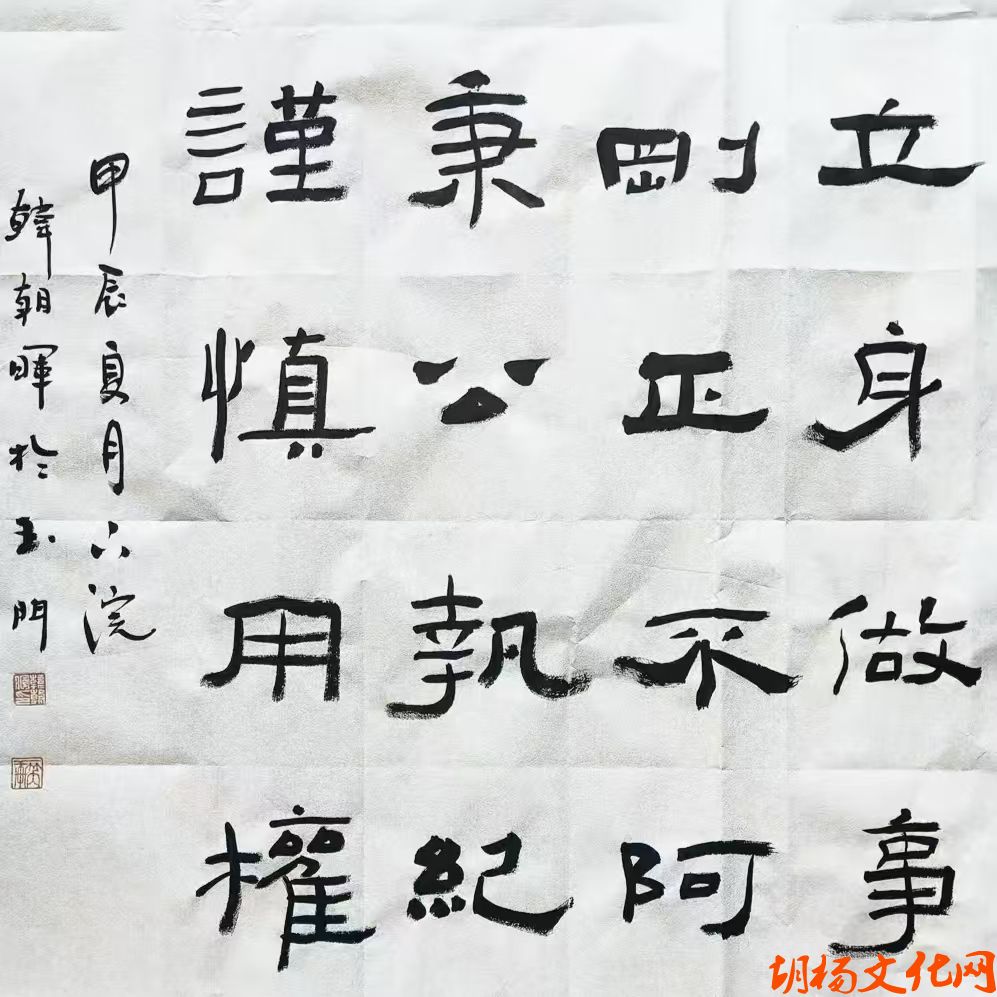 立身做事
剛正不阿
秉公執紀
謹慎用權
甲辰夏月六浣
韓朝暉於玉門
胡杨文化网